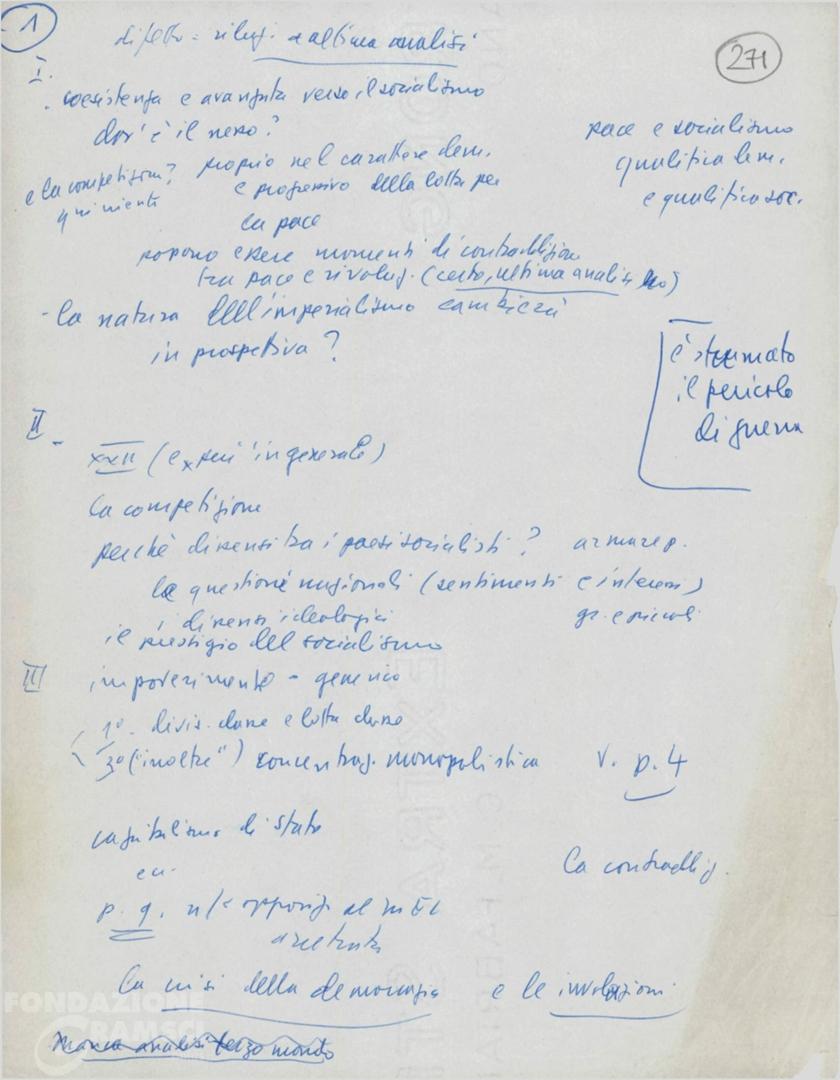 1
271
difetto = rivluz. e ultima analisi
I.
. coesistenza e avanzata verso il socialismo
dov'è il nesso?
pace e socialismo
qualifica dem.
e qualifica soc.
e la competizion? qui niente
proprio nel carattere dem.
e progressivo della lotta per
la pace
possono essere momenti di contraddizion
tra pace e rivoluz. (certo, ultima analisi no)
- la natura dell'imperialismo cambierà
in prospettiva?
è sfumato
il pericolo
di guerra
II -
XXII (e x può in generale)
la competizione
perchè dissensi tra i paesi socialisti? armare p.
le questioni nazionali (sentimenti e interessi)
i dissensi ideologici gr. e piccoli
il prestigio del socialismo
III
impoverimento - generico
1º. divis. classe e lotta classe
3º ("inoltre") concentraz. monopolistica v. p. 4
capitalismo di stato
ecc.
La contraddiz.
p. 9. n/s opposiz. al MEC
arretrata
La crisi della democrazia e le involuzioni
Manca analisi terzo mondo
FONDAZIONE
GRAMSCI